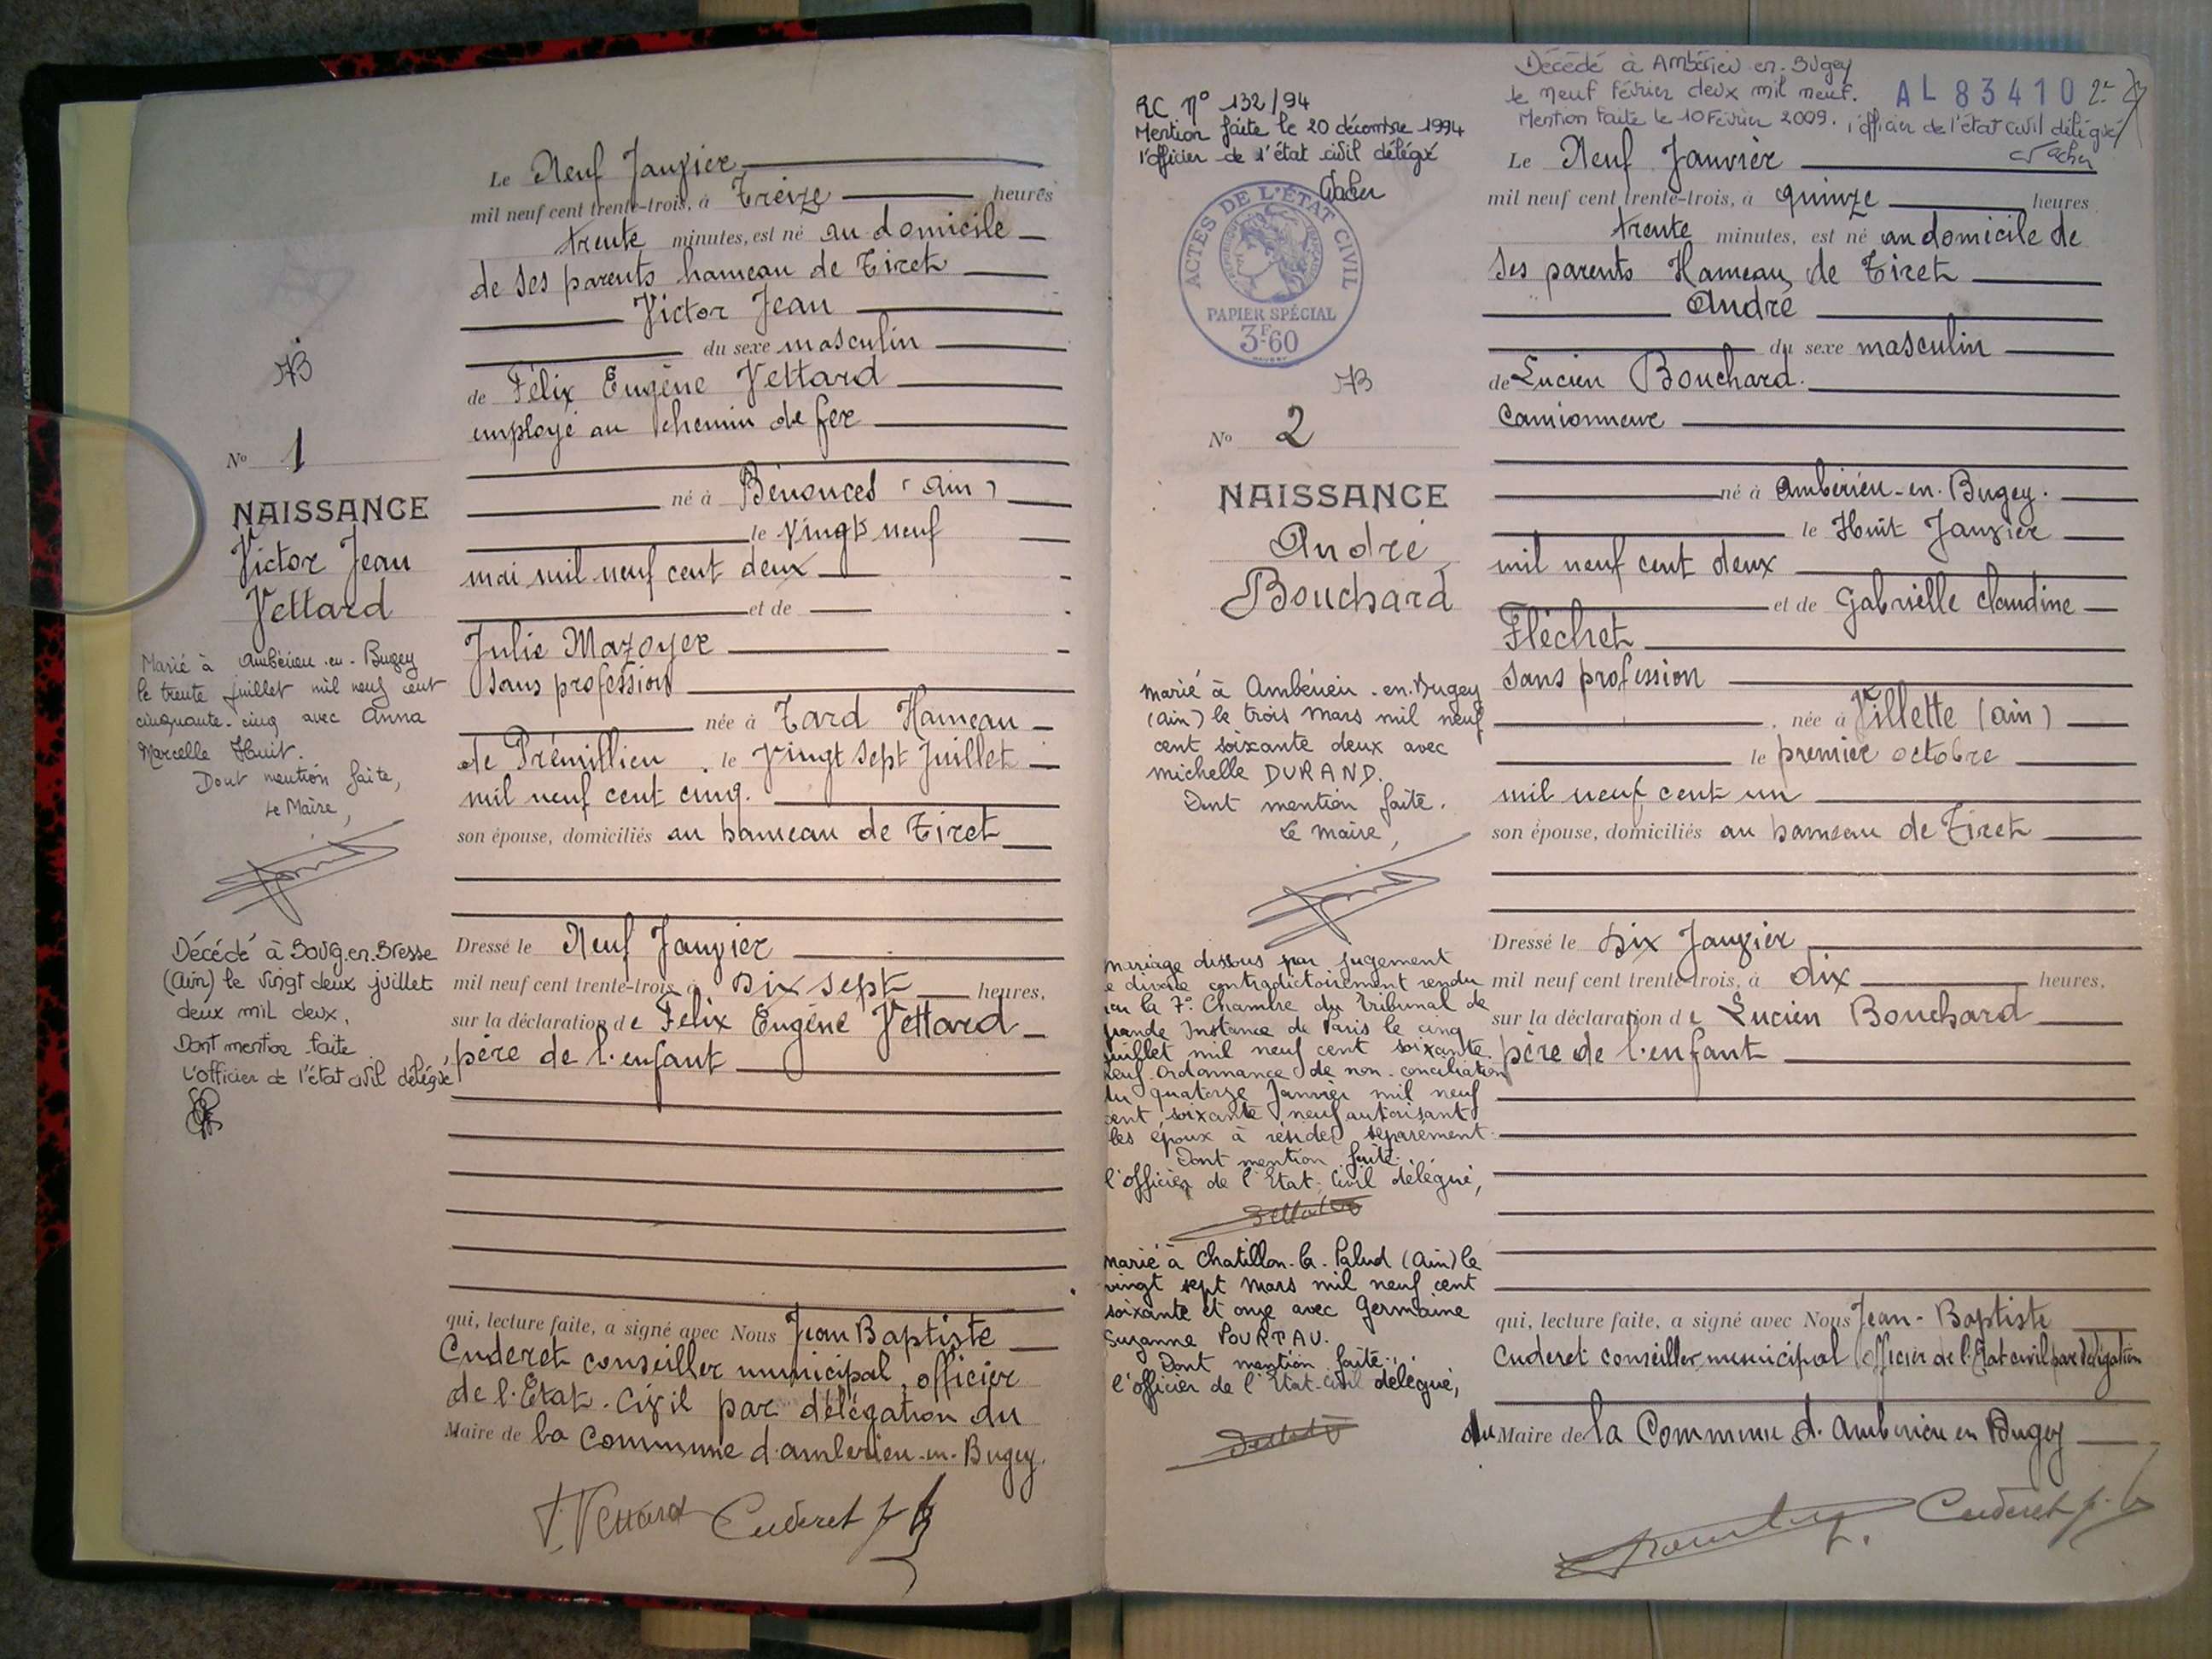 Le Neuf Janvier
mil neuf cent trente-trois, à Treize heures
trente minutes, est né au domicile
de ses parents hameau de Tiret
Victor Jean
du sexe masculin
de Félix Eugène Vettard
employé au chemin de fer
né à Bénonces (Ain)
le Vingt neuf
mai mil neuf cent deux
et de
Julie Mazoyer
sans profession
née à Tard Hameau
de Prémillieu le Vingt sept Juillet
mil neuf cent cinq.
son épouse, domiciliés au hameau de Tiret
Dressé le Neuf Janvier
mil neuf cent trente-trois, à Dix sept heures,
sur la déclaration de Félix Eugène Vettard
père de l'enfant
qui, lecture faite, a signé avec Nous Jean Baptiste
Cuderet conseiller municipal, officier
de l'Etat-Civil par délégation du
Maire de la Commune d'ambérieu-en-Bugey.
F. Vettard Cuderet
AB
No 1
NAISSANCE
Victor Jean
Vettard
Marié à Ambérieu-en-Bugey
le trente juillet mil neuf cent
cinquante-cinq avec Anna
Marcelle Huit.
Dont mention faite,
Le Maire,
Décédé à Bourg.en.Bresse
(Ain) le vingt deux juillet
deux mil deux.
Dont mention faite
L'officier de l'état civil délégué
RC N° 132/94
Mention faite le 20 décembre 1994
l'officier de l'état civil délégué
ACTES DE L'ÉTAT CIVIL
PAPIER SPÉCIAL
3F60
AB
No 2
NAISSANCE
André
Bouchard
marié à Ambérieu-en-Bugey
(Ain) le trois mars mil neuf
cent soixante deux avec
michelle DURAND.
Dont mention faite.
Le maire,
mariage dissous par jugement
de divorce contradictoirement rendu
par la 7° Chambre du Tribunal de
Grande Instance de Paris le cinq
juillet mil neuf cent soixante
neuf. Ordonnance de non-conciliation
du quatorze Janvier mil neuf
cent soixante neuf autorisant
les époux à résider séparément.
Dont mention faite.
l'officier de l'Etat-Civil délégué,
marié à Chatillon-la-Palud (Ain) le
vingt sept mars mil neuf cent
soixante et onze avec Germaine
Suzanne POURTAU.
Dont mention faite.
l'officier de l'Etat-Civil délégué,
Décédé à Ambérieu-en-Bugey
le neuf février deux mil neuf.
Mention faite le 10 Février 2009. l'officier de l'état civil délégué
AL 83410
Le Neuf Janvier
mil neuf cent trente-trois, à quinze heures
trente minutes, est né au domicile de
ses parents Hameau de Tiret
André
du sexe masculin
de Lucien Bouchard.
Camionneur
né à Ambérieu-en-Bugey.
le Huit Janvier
mil neuf cent deux
et de Gabrielle Claudine
Fléchet
sans profession
née à Villette (Ain)
le premier octobre
mil neuf cent un
son épouse, domiciliés au hameau de Tiret
Dressé le Dix Janvier
mil neuf cent trente-trois, à dix heures,
sur la déclaration de Lucien Bouchard
père de l'enfant
qui, lecture faite, a signé avec Nous Jean-Baptiste
Cuderet conseiller municipal officier de l'Etat civil par délégation
du Maire de la Commune d'Ambérieu en Bugey
Cuderet